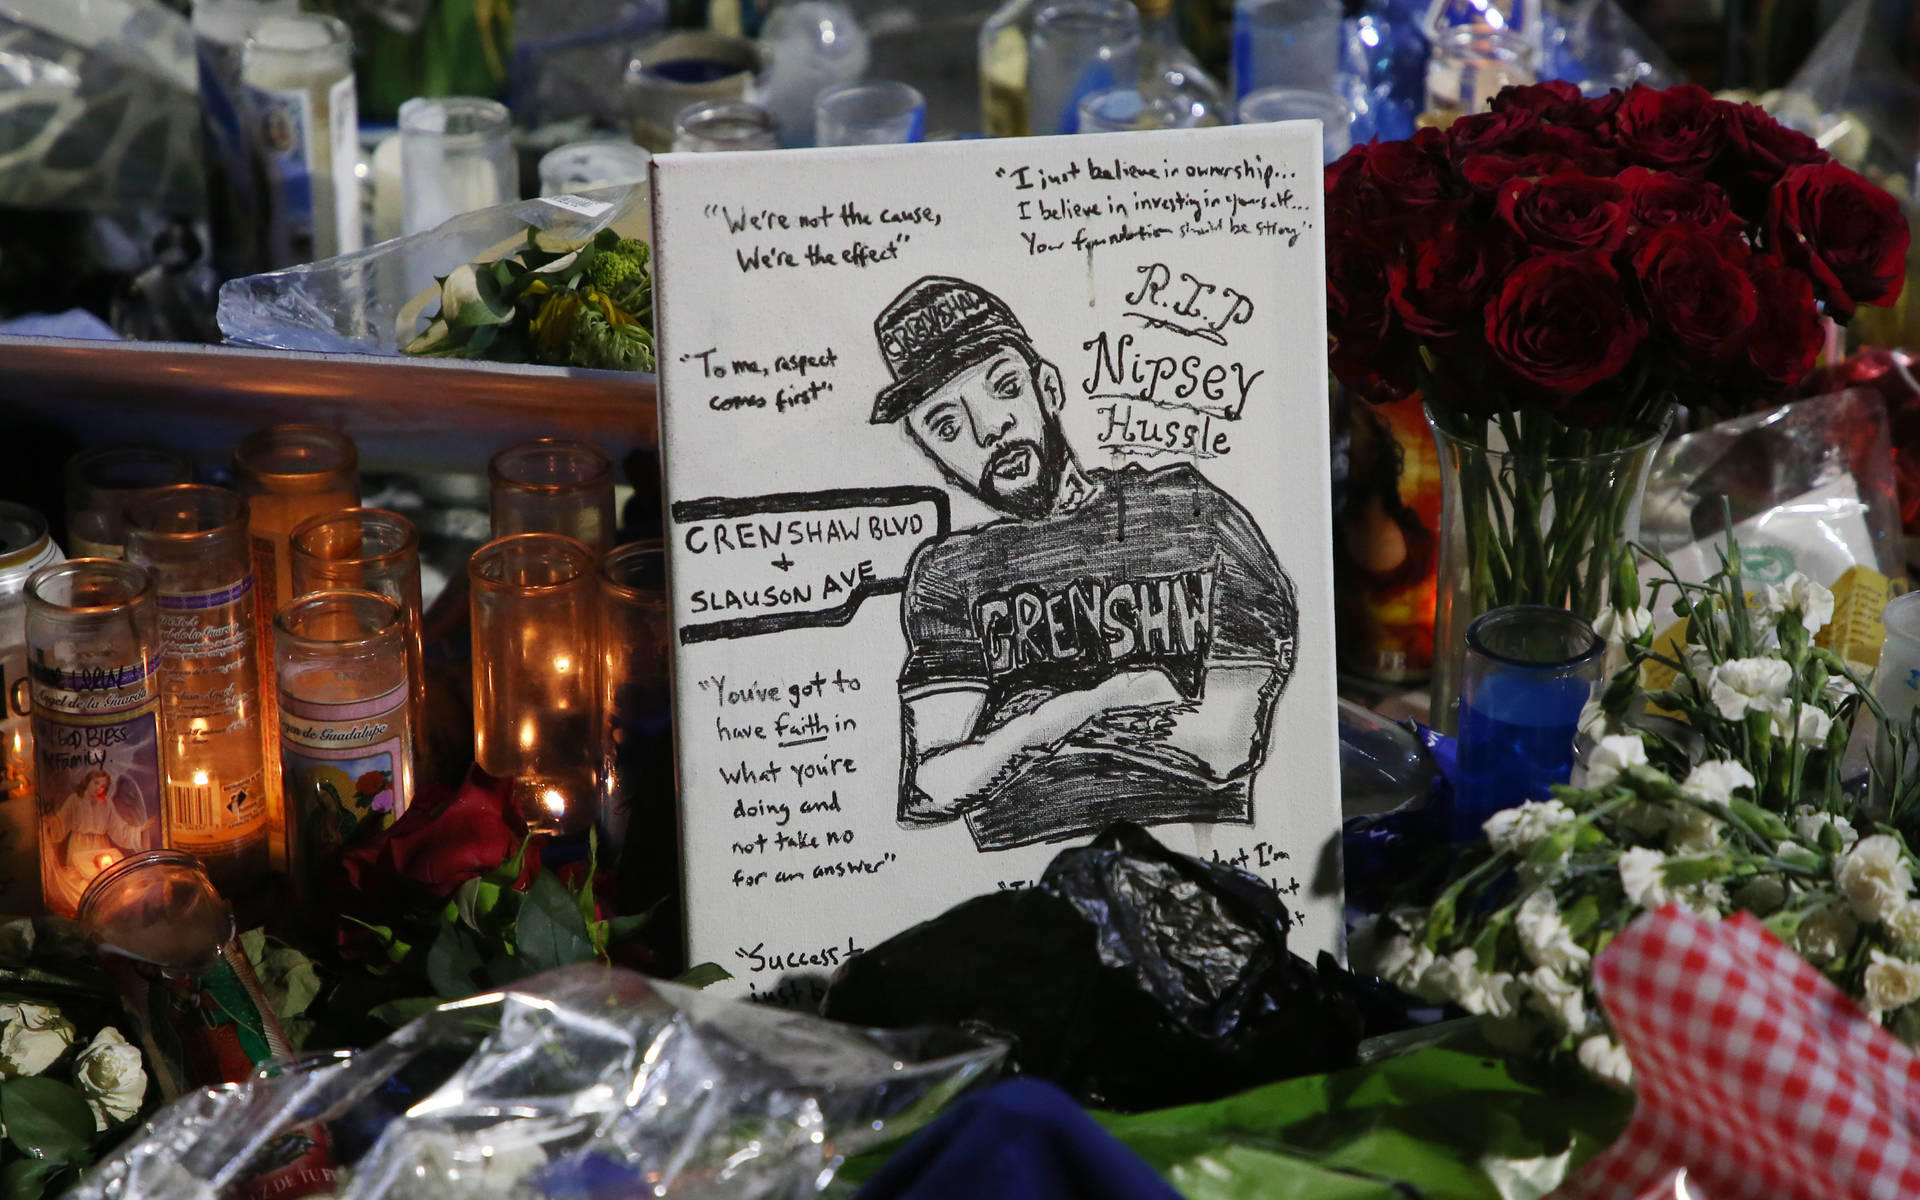 "We're not the cause,
We're the effect"
"I just believe in ownership...
I believe in investing in yourself...
Your foundation should be strong".
R.I.P
Nipsey
Hussle
"To me, respect
comes first"
CRENSHAW
CRENSHAW BLVD
+
SLAUSON AVE
CRENSHW
"You've got to
have faith in
what you're
doing and
not take no
for an answer"
what I'm
"Success
just
Angel de la Guarda
GOD BLESS
Family.
de Guadalupe